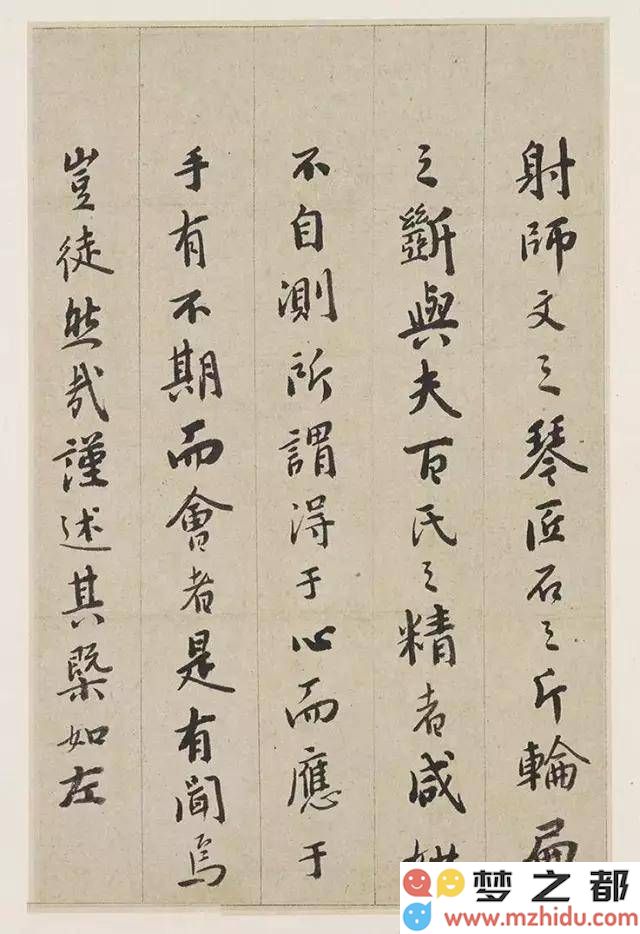 射師文之琴匠石之斤輪扁
之斷與夫百氏之精者咸
不自測所謂得于心而應于
手有不期而會者是有聞焉
豈徒然哉謹述其槩如左
梦之都
www.mzhidu.com